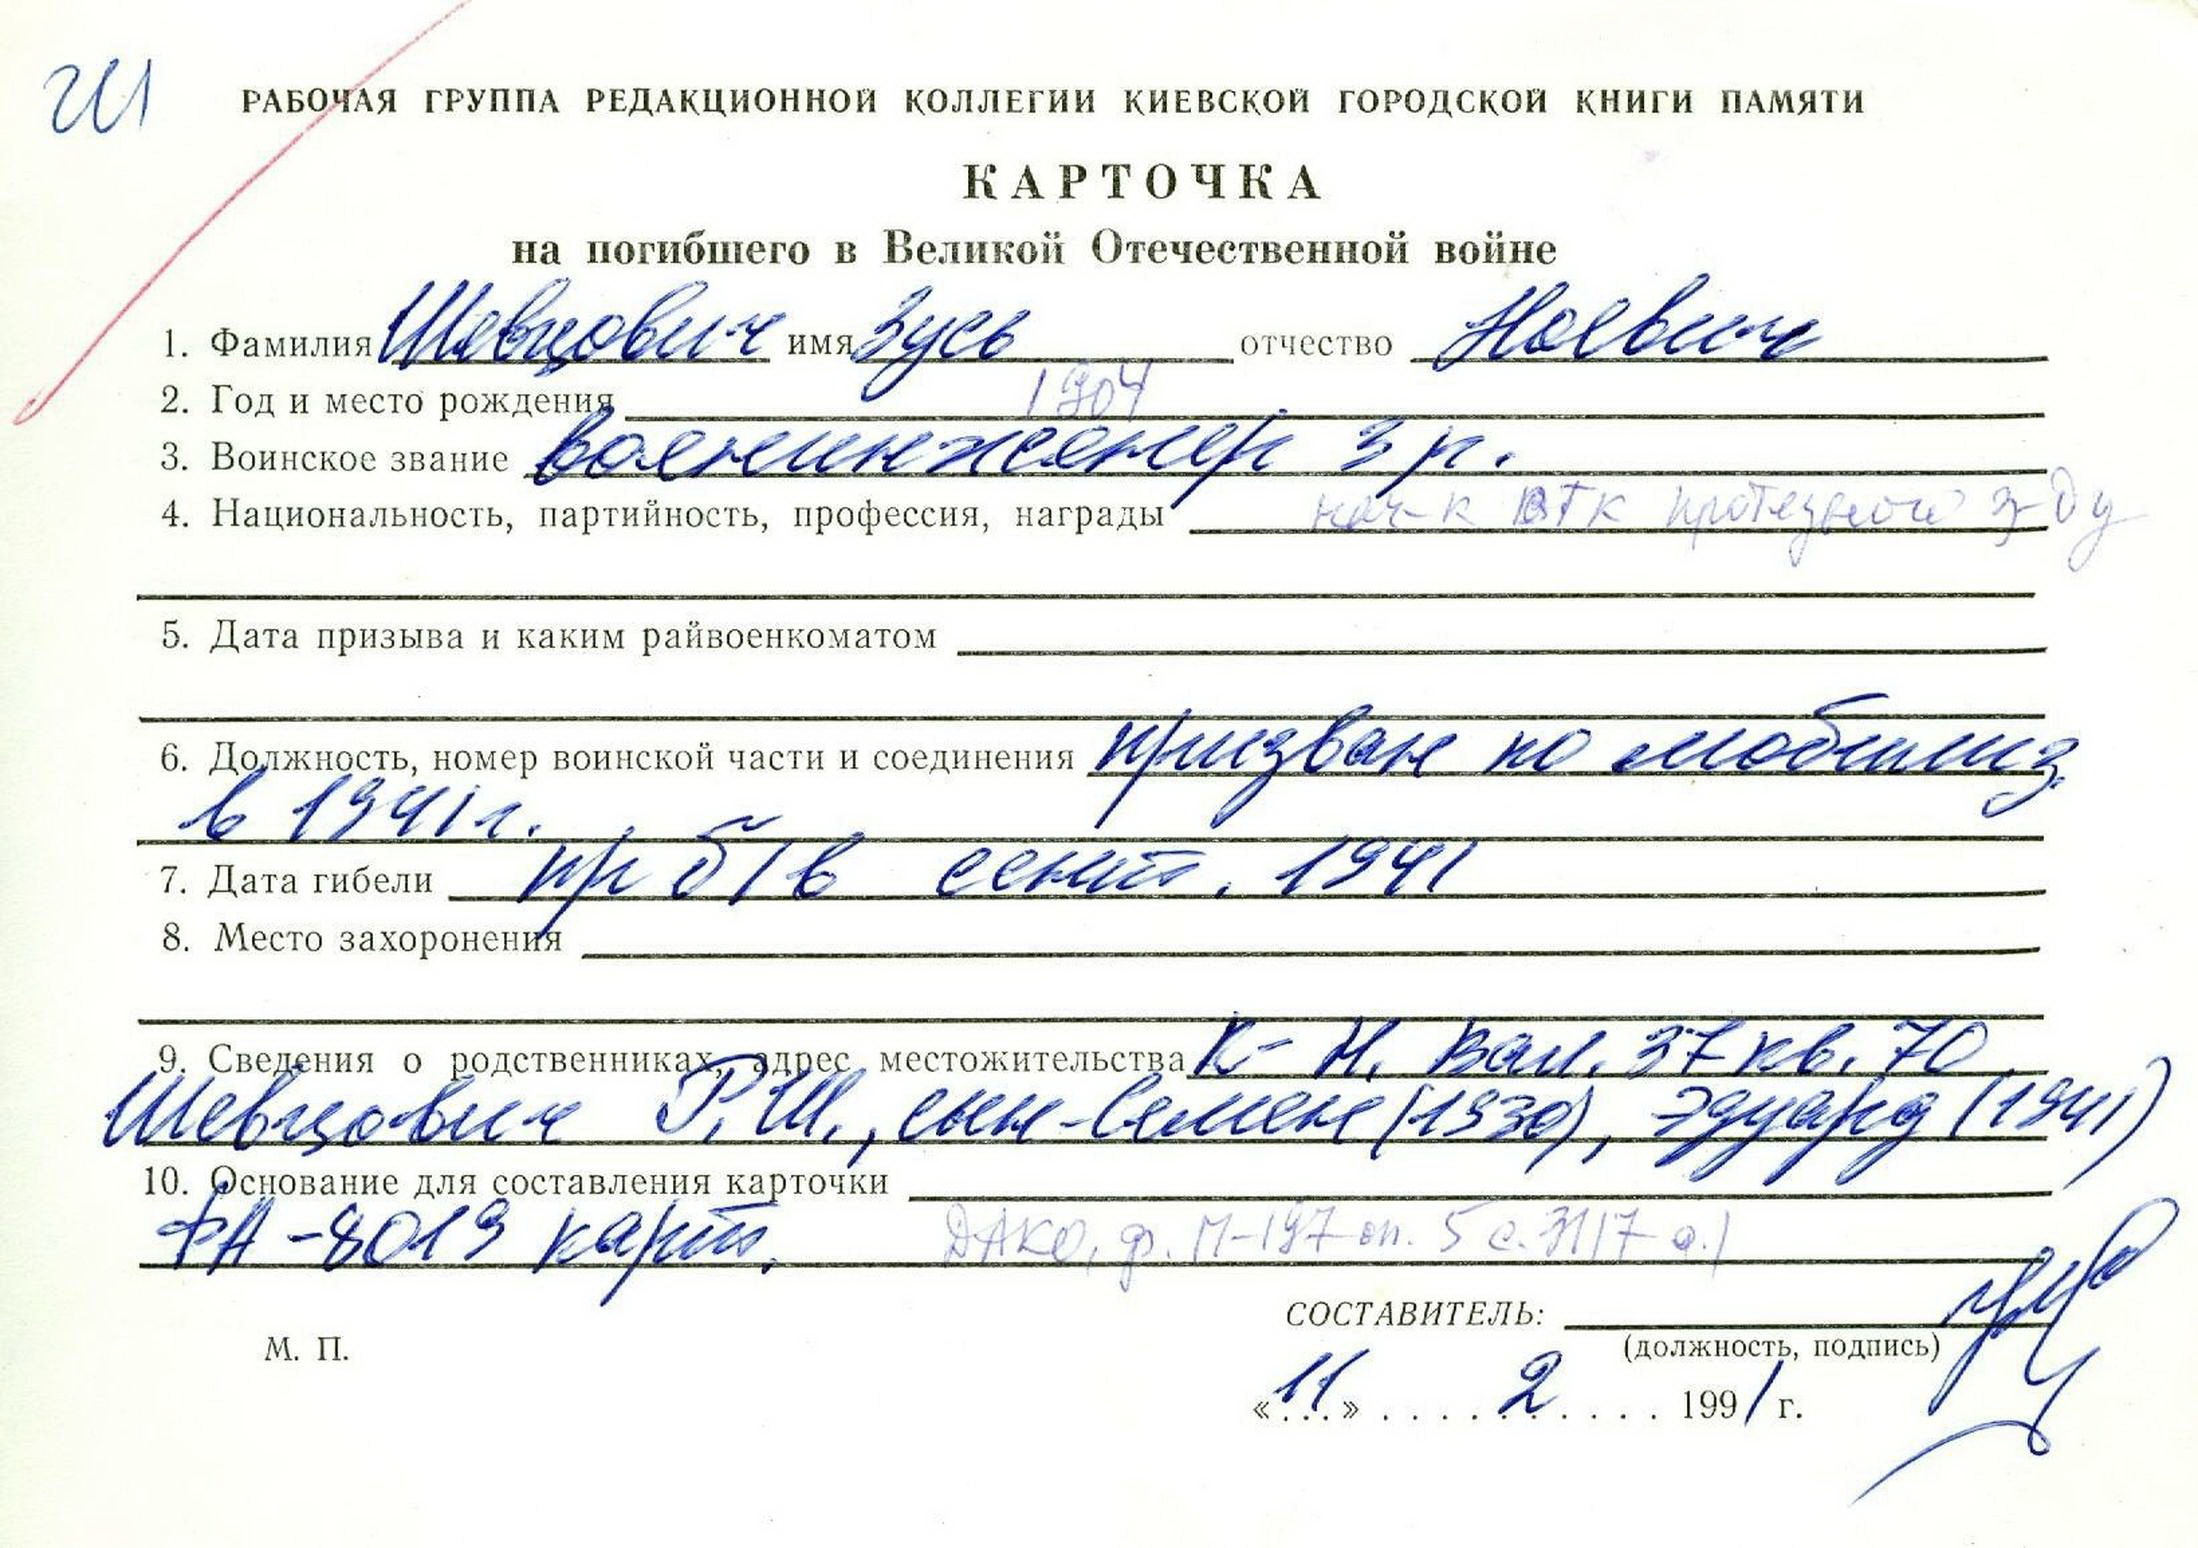 РАБОЧАЯ ГРУППА РЕДАКЦИОННОЙ КОЛЛЕГИИ КИЕВСКОЙ ГОРОДСКОЙ КНИГИ ПАМЯТИ
КАРТОЧКА
на погибшего в Великой Отечественной войне
1. Фамилия Шевцович имя Зусь отчество Ноевич
2. Год и место рождения 1904
3. Воинское звание военинженер 3 р.
4. Национальность, партийность, профессия, награды нач-к ВТК протезного з-ду
5. Дата призыва и каким райвоенкоматом
6. Должность, номер воинской части и соединения призван по мобилиз
в 1941 г.
7. Дата гибели пр б/в сент. 1941
8. Место захоронения
9. Сведения о родственниках, адрес местожительства К- Н. Вал. 37 кв. 70
Шевцович Р.Ш., сын-Семен (1930), Эдуард (1941)
10. Основание для составления карточки
ФА-8019 карт. ДАКО, ф. П-197 оп. 5 с.
СОСТАВИТЕЛЬ:
М. П.
(должность, подпись)
«11» 2 1991 г.